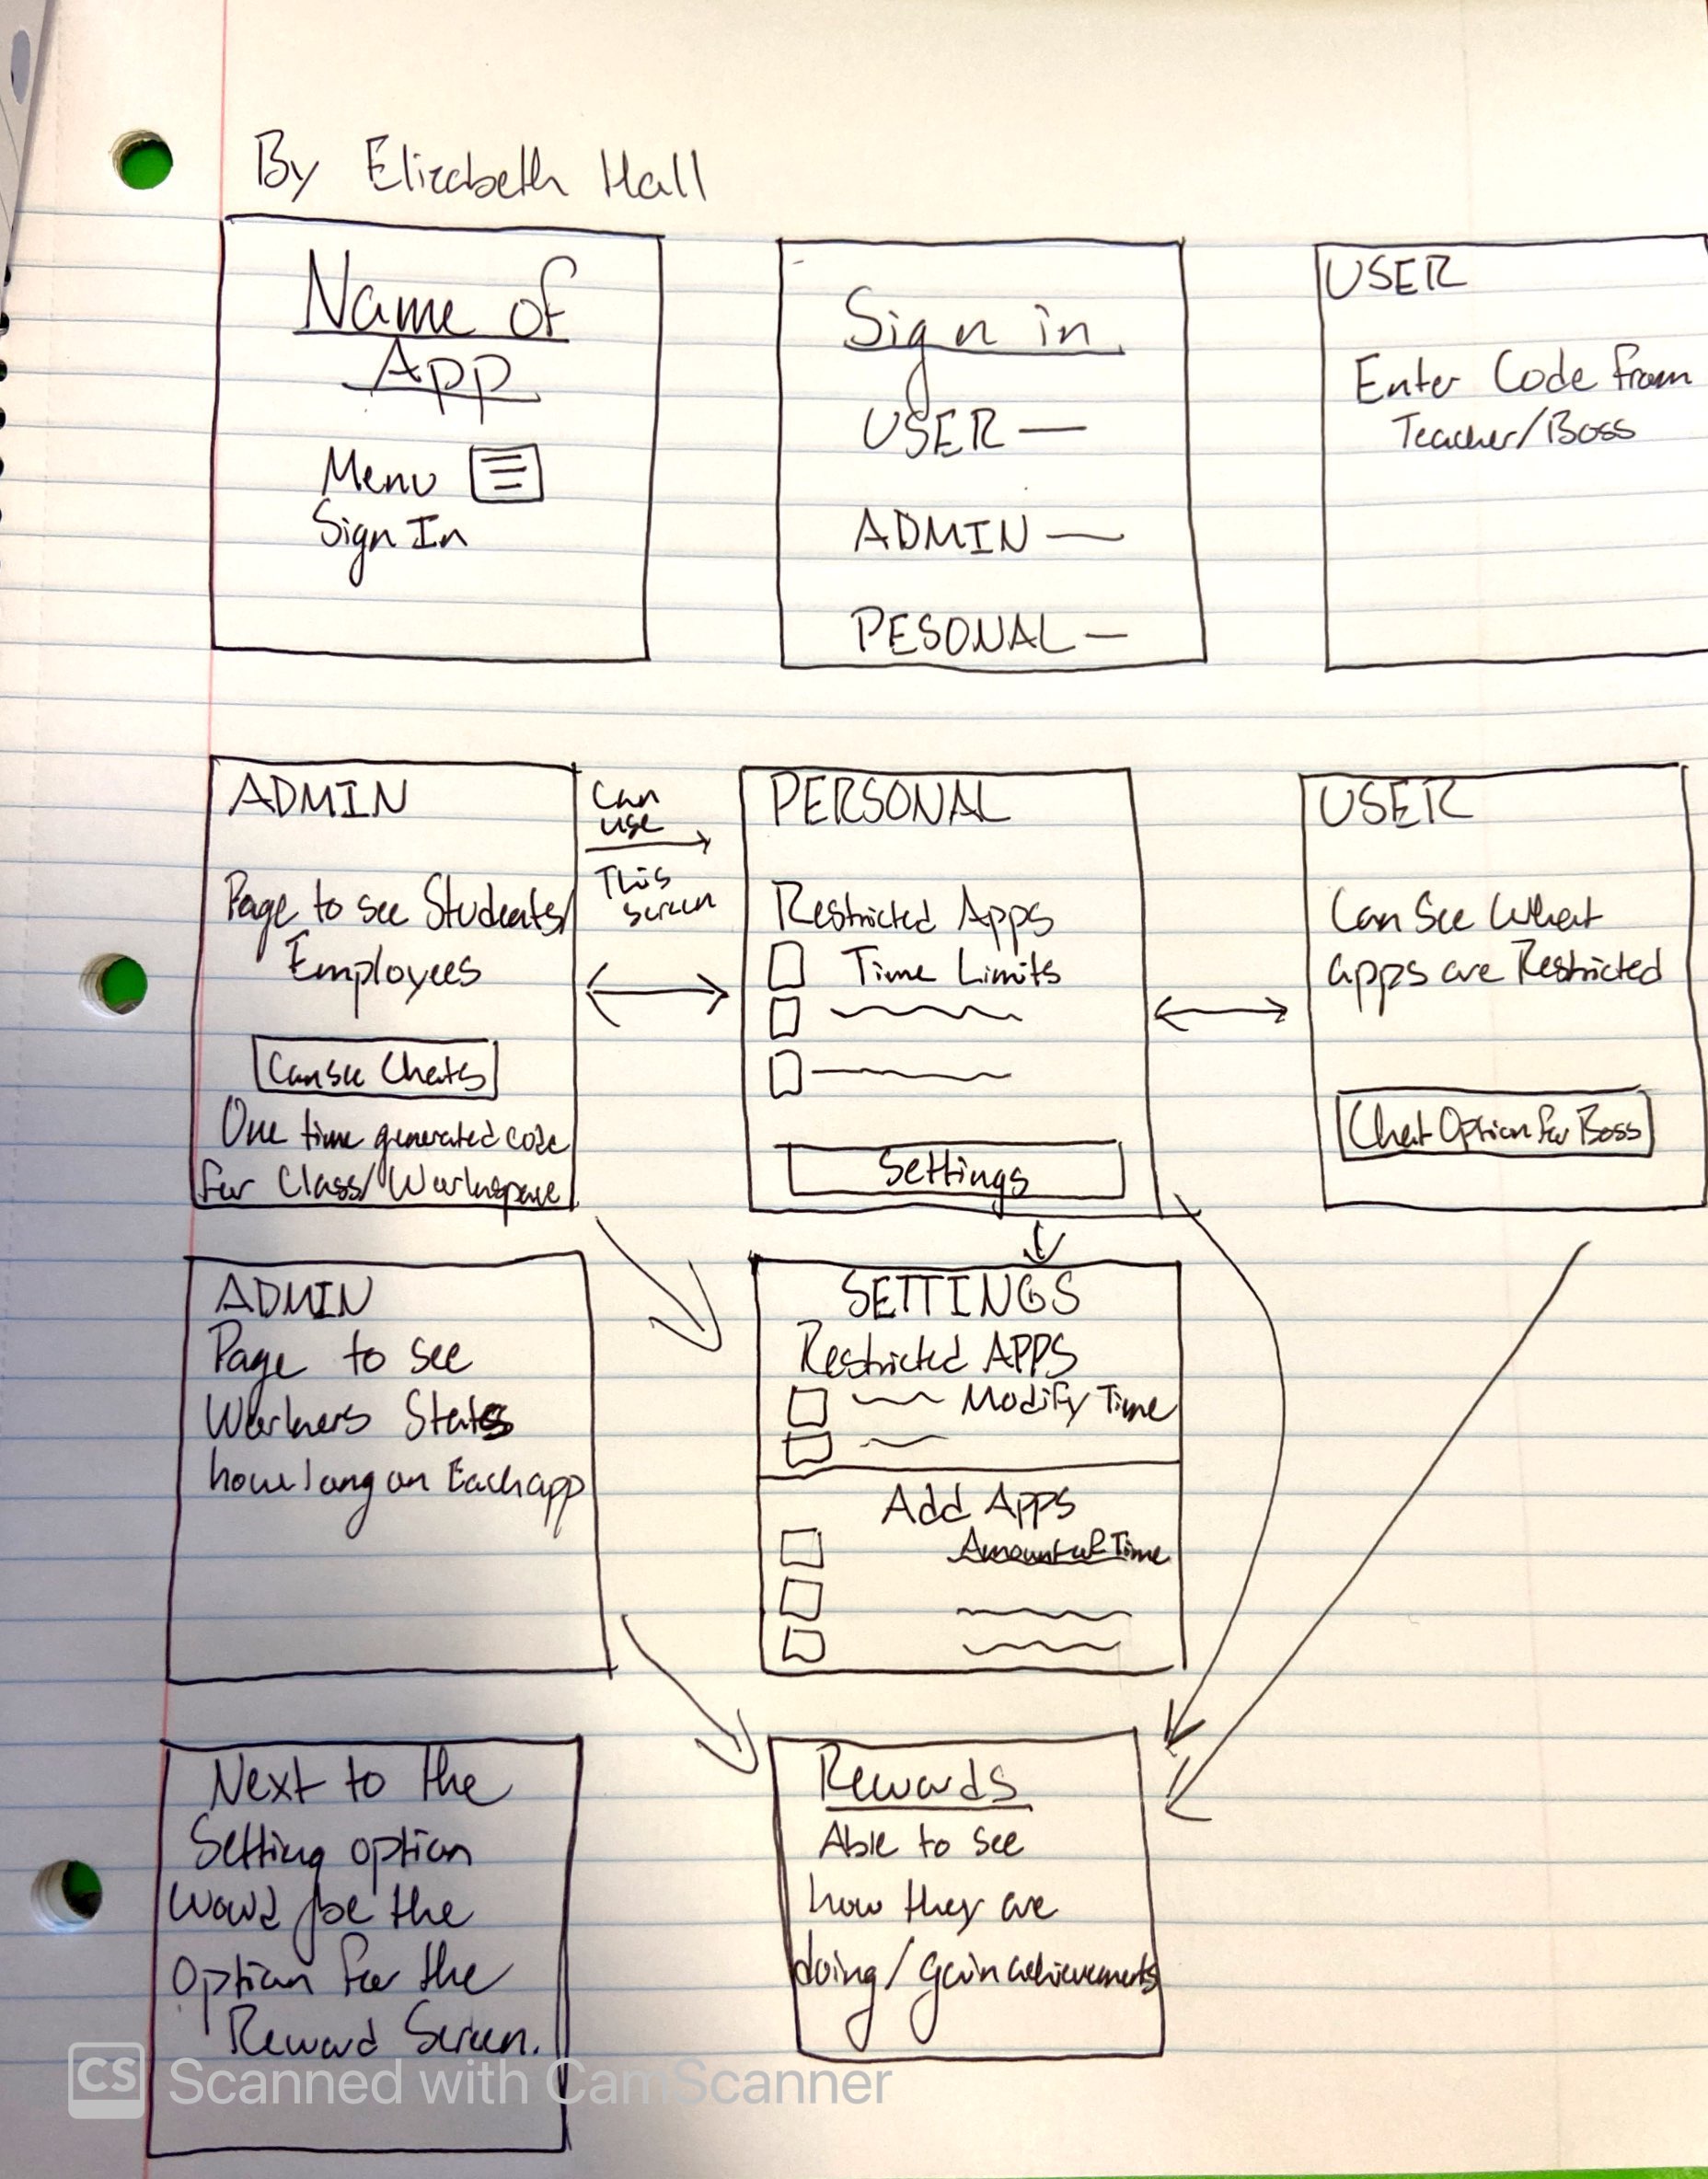 By Elizabeth Hall
Name of
App
Menu
Sign In
Sign in
USER —
ADMIN —
PESONAL —
USER
Enter Code from
Teacher/Boss
ADMIN
Page to see Students/
Employees
Can see Chats
One time generated code
for Class/Workspace
Can
use
This
screen
PERSONAL
Restricted Apps
Time Limits
Settings
USER
Can See What
apps are Restricted
Chat Option for Boss
ADMIN
Page to see
Workers Stats
how long on Each app
SETTINGS
Restricted APPS
Modify Time
Add Apps
Amount of Time
Next to the
Setting option
Would be the
Option for the
Reward Screen.
Rewards
Able to see
how they are
doing/gain achievements
CS Scanned with CamScanner